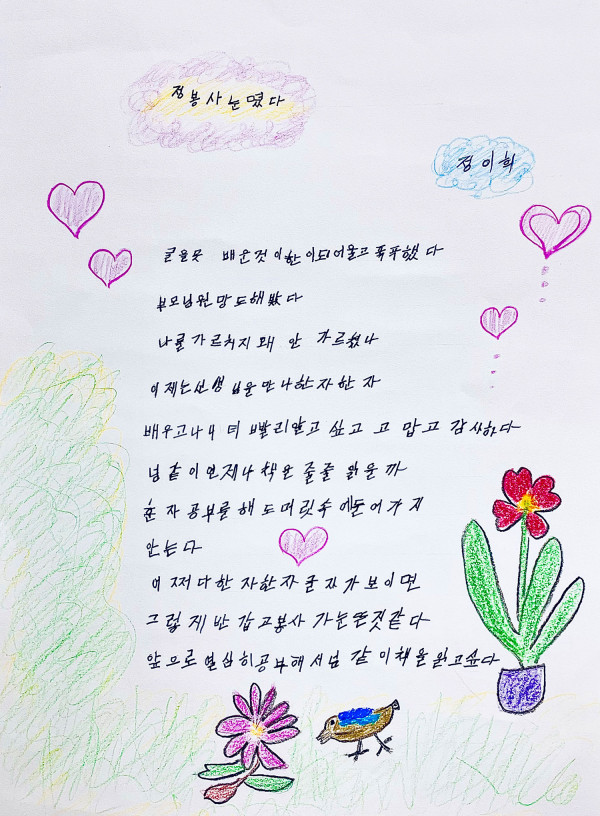 정봉사눈떴다
정이희
글을못 배운것이한이되어울고푹푹했다
부모님원망도해봤다
나를가르치지왜 안 가르쳤나
이제는선생님을만나한자한자
배우고나니 더 빨리알고 싶고 고맙고 감사하다
남같이언제나책을줄줄 읽을까
혼자공부를해도머릿속에들어가지
안는다
어쩌다한자한자글자가보이면
그렇게반갑고봉사가눈뜬것같다
앞으로열심히공부해서남같이책을읽고싶다